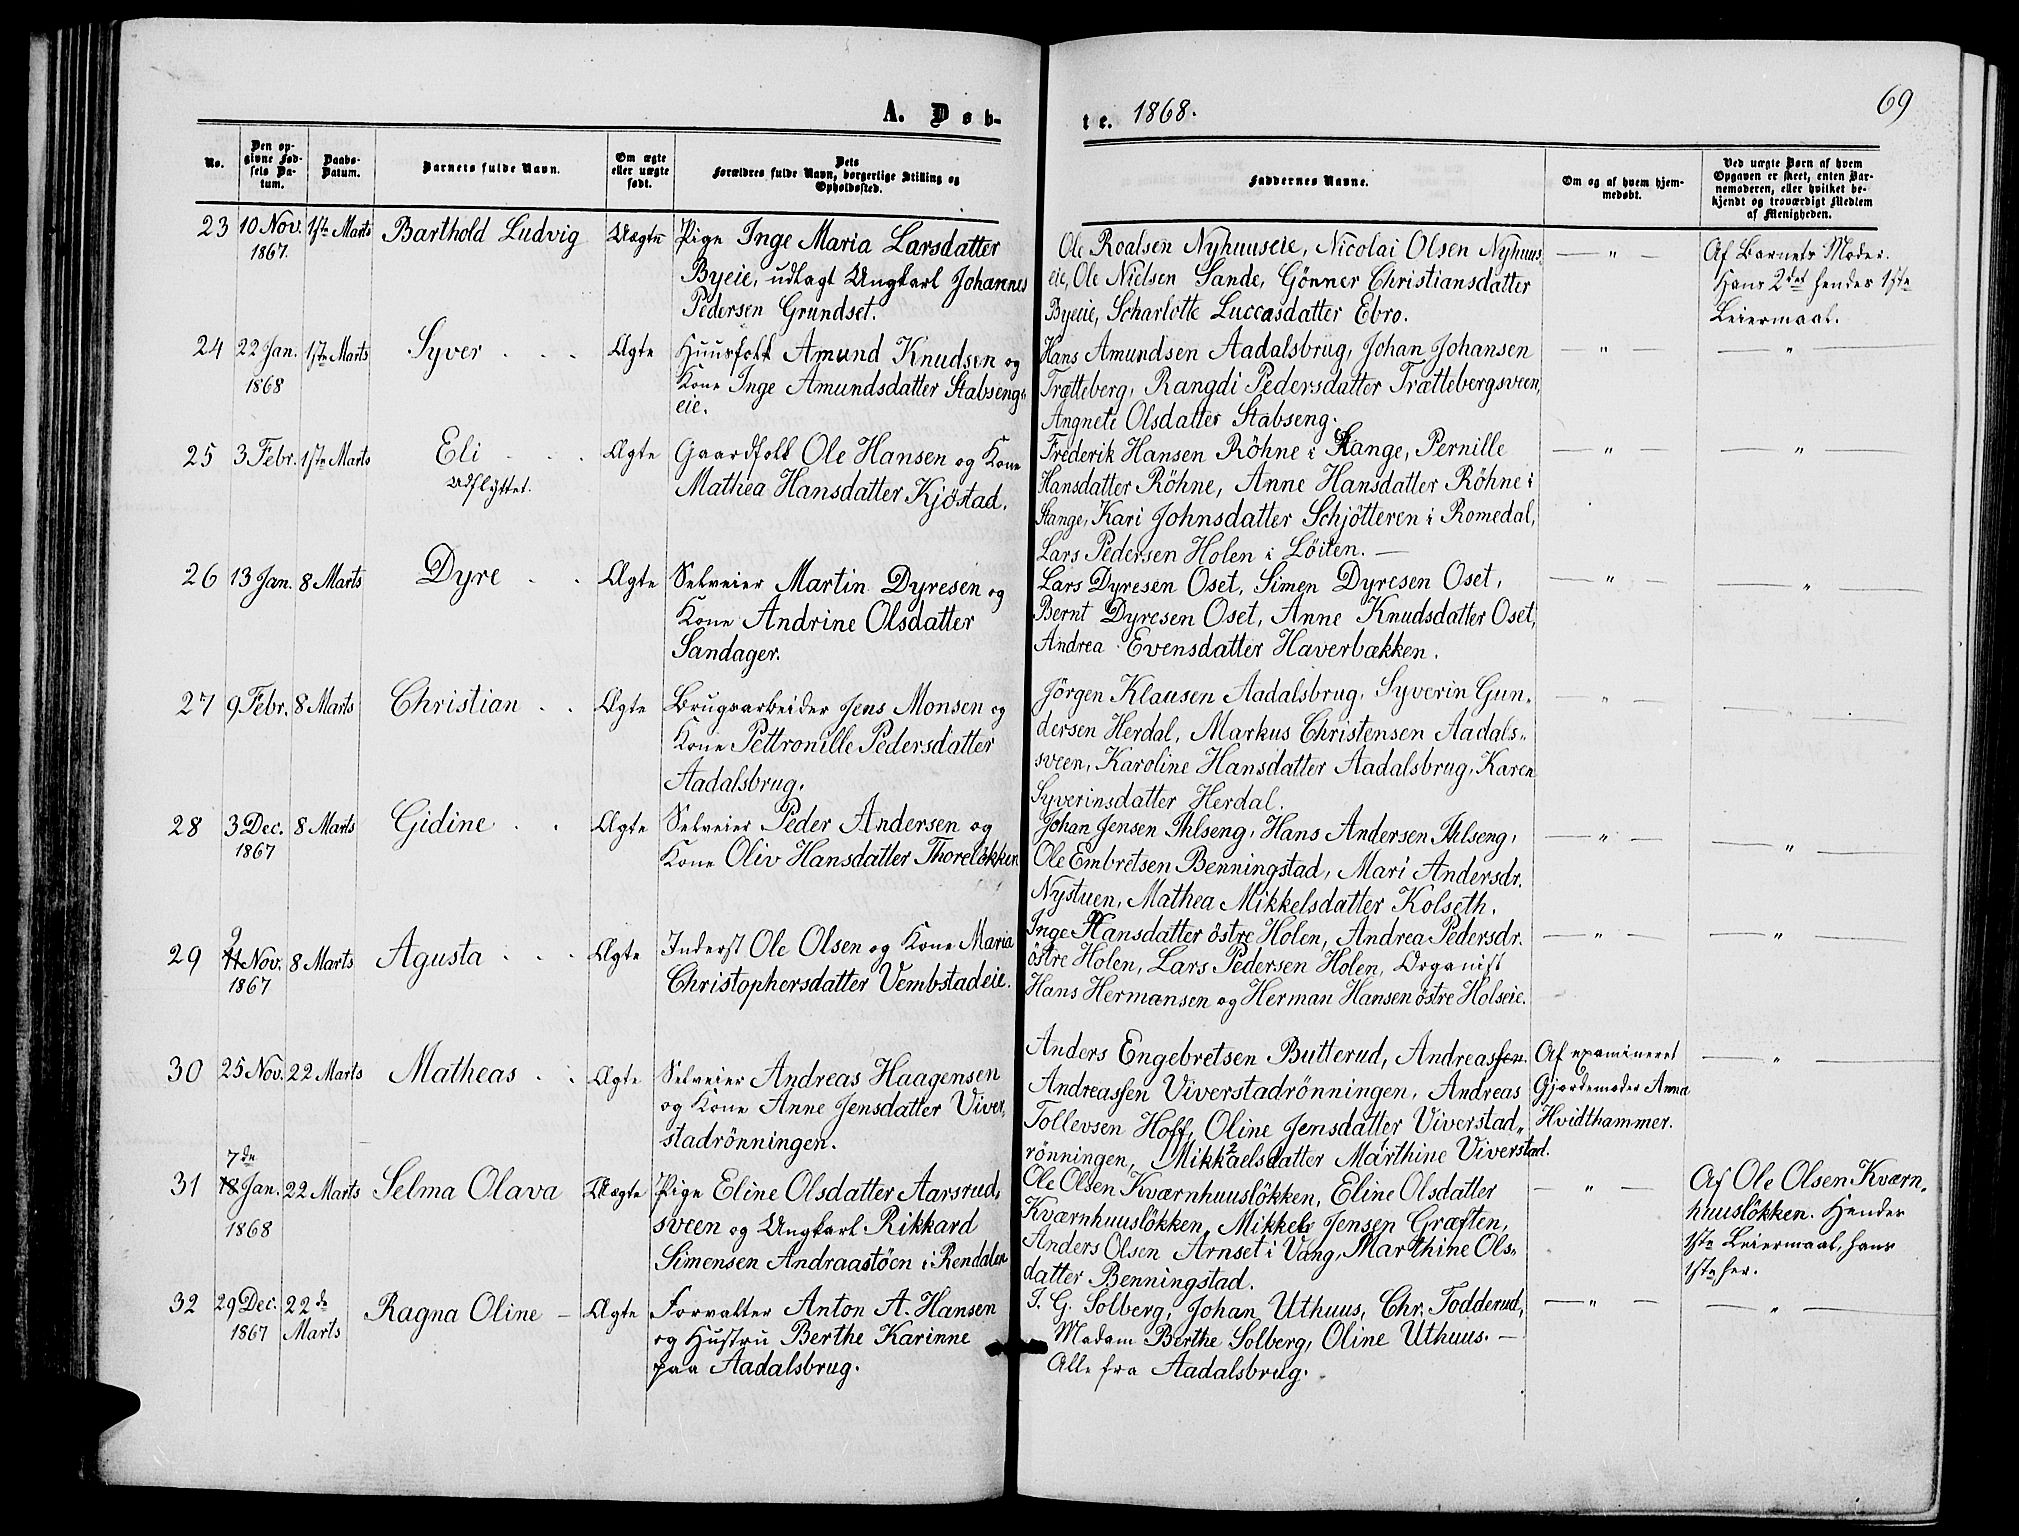 A. Døb-
te. 1868.
69
No.
Den op-
givne Fød-
sels Da-
tum.
Daabs-
Datum.
Barnets fulde Navn.
Om ægte
eller uægte
født.
Dets
Forældres fulde Navn, borgerlige Stilling og
Opholdssted.
Faddernes Navne.
Om og af hvem hjem-
medøbt.
Ved uægte Børn af hvem
Opgaven er skeet, enten Bar-
nemoderen, eller hvilket be-
kjendt og troværdigt Medlem
af Menigheden.
23 10 Nov. 1ste Marts Barthold Ludvig Uægte Pige Inge Maria Larsdatter
1867.
Byeie, udlagt Ungkarl Johannes
Pedersen Grundset.
Ole Roalsen Nyhuuseie, Nicolai Olsen Nyhuus-
eie, Ole Nielsen Sande, Gønner Christiansdatter
Byeie, Scharlotte Luccasdatter Ebro.
— " —
Af Barnets Moder.
Hans 2det hendes 1ste
Leiermaal.
24 22 Jan. 1ste Marts Syver . . . Ægte Huusfolk Amund Knudsen og
1868
Kone Inge Amundsdatter Stabseng-
eie.
Hans Amundsen Aadalsbrug, Johan Johansen
Trætteberg, Rangdi Pedersdatter Trættebergsveen,
Angnete Olsdatter Stabseng.
— " —
— " —
25 3 Febr. 1ste Marts Eli . . . Ægte Gaardfolk Ole Hansen og Kone
Udflyttet.
Mathea Hansdatter Kjöstad.
Frederik Hansen Röhne i Stange, Pernille
Hansdatter Röhne, Anne Hansdatter Röhne i
Stange, Kari Johnsdatter Schjötteren i Romedal,
Lars Pedersen Holen i Löiten. —
— " —
— " —
26 13 Jan. 8 Marts Dyre . . Ægte Selveier Martin Dyresen og
Kone Andrine Olsdatter
Sandager.
Lars Dyresen Oset, Simen Dyresen Oset,
Bernt Dyresen Oset, Anne Knudsdatter Oset,
Andrea Evensdatter Haverbækken.
— " —
— " —
27 9 Febr. 8 Marts Christian . . Ægte Brugsarbeider Jens Monsen og
Kone Pettronille Pedersdatter
Aadalsbrug.
Jörgen Klausen Aadalsbrug, Syverin Gun-
dersen Herdal, Markus Christensen Aadals-
sveen, Karoline Hansdatter Aadalsbrug, Karen
Syverinsdatter Herdal.
— " —
— " —
28 3 Dec. 8 Marts Gidine . . Ægte Selveier Peder Andersen og
1867
Kone Oliv Hansdatter Thorelökken
Johan Jensen Ihlseng, Hans Andersen Ihlseng,
Ole Embretsen Benningstad, Mari Andersdr.
Nystuen, Mathea Mikkelsdatter Kolseth.
— " —
— " —
9
29 11 Nov. 8 Marts Agusta . . . Ægte Inderst Ole Olsen og Kone Maria
1867
Christophersdatter Vembstadeie.
Inge Hansdatter östre Holen, Andrea Pedersdr.
östre Holen, Lars Pedersen Holen, Organist
Hans Hermansen og Herman Hansen östre Holseie.
— " —
— " —
30 25 Nov. 22 Marts Matheas . . Ægte Selveier Andreas Haagensen
og Kone Anne Jensdatter Viver-
stadrönningen.
Anders Engebretsen Butterud, Andreassen
Andreassen Viverstadrönningen, Andreas
Tollevsen Hoff, Oline Jensdatter Viverstad-
rönningen, Mikkaelsdatter Marthine Viverstad.
Af examineret
Gjordemoder Anna
Hvidthammer.
— " —
7de
31 18 Jan. 22 Marts Selma Olava Uægte Pige Eline Olsdatter Aarsrud-
1868
sveen og Ungkarl Rikkard
Simensen Andraastöen i Rendalen
Ole Olsen Kværnhuuslökken, Eline Olsdatter
Kværnhuuslökken, Mikkel Jensen Græften,
Anders Olsen Arnset i Vang, Marthine Ols-
datter Benningstad.
— " —
Af Ole Olsen Kværn-
huuslökken. Hendes
1ste Leiermaal, hans
1ste her.
32 29 Dec. 22de Ragna Oline — Ægte Forvalter Anton A. Hansen
1867 Marts
og Hustru Berthe Karinne
paa Aadalsbrug.
I. G. Solberg, Johan Uthuus, Chr. Todderud,
Madam Berthe Solberg, Oline Uthuus. —
Alle fra Aadalsbrug.
— " —
— " —